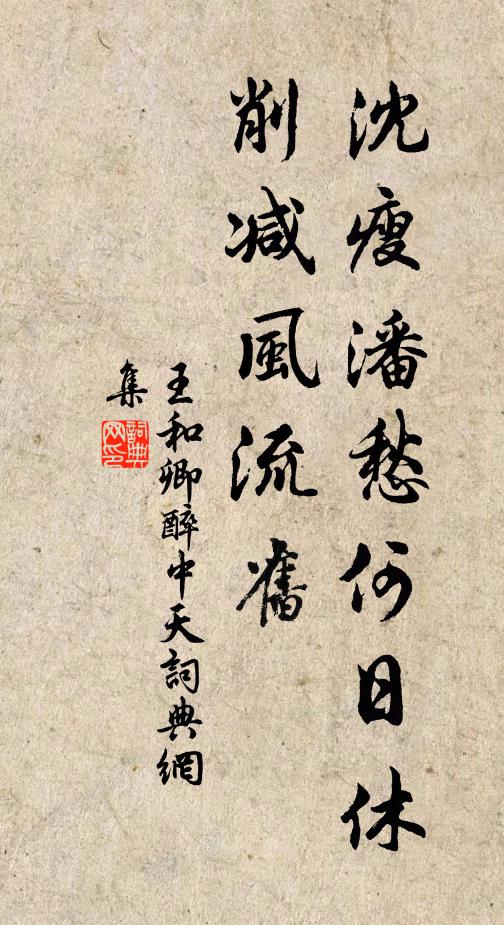 沈瘦潘愁何日休
削减風流舊
王和卿醉中天詞典網
集
詞典
网印